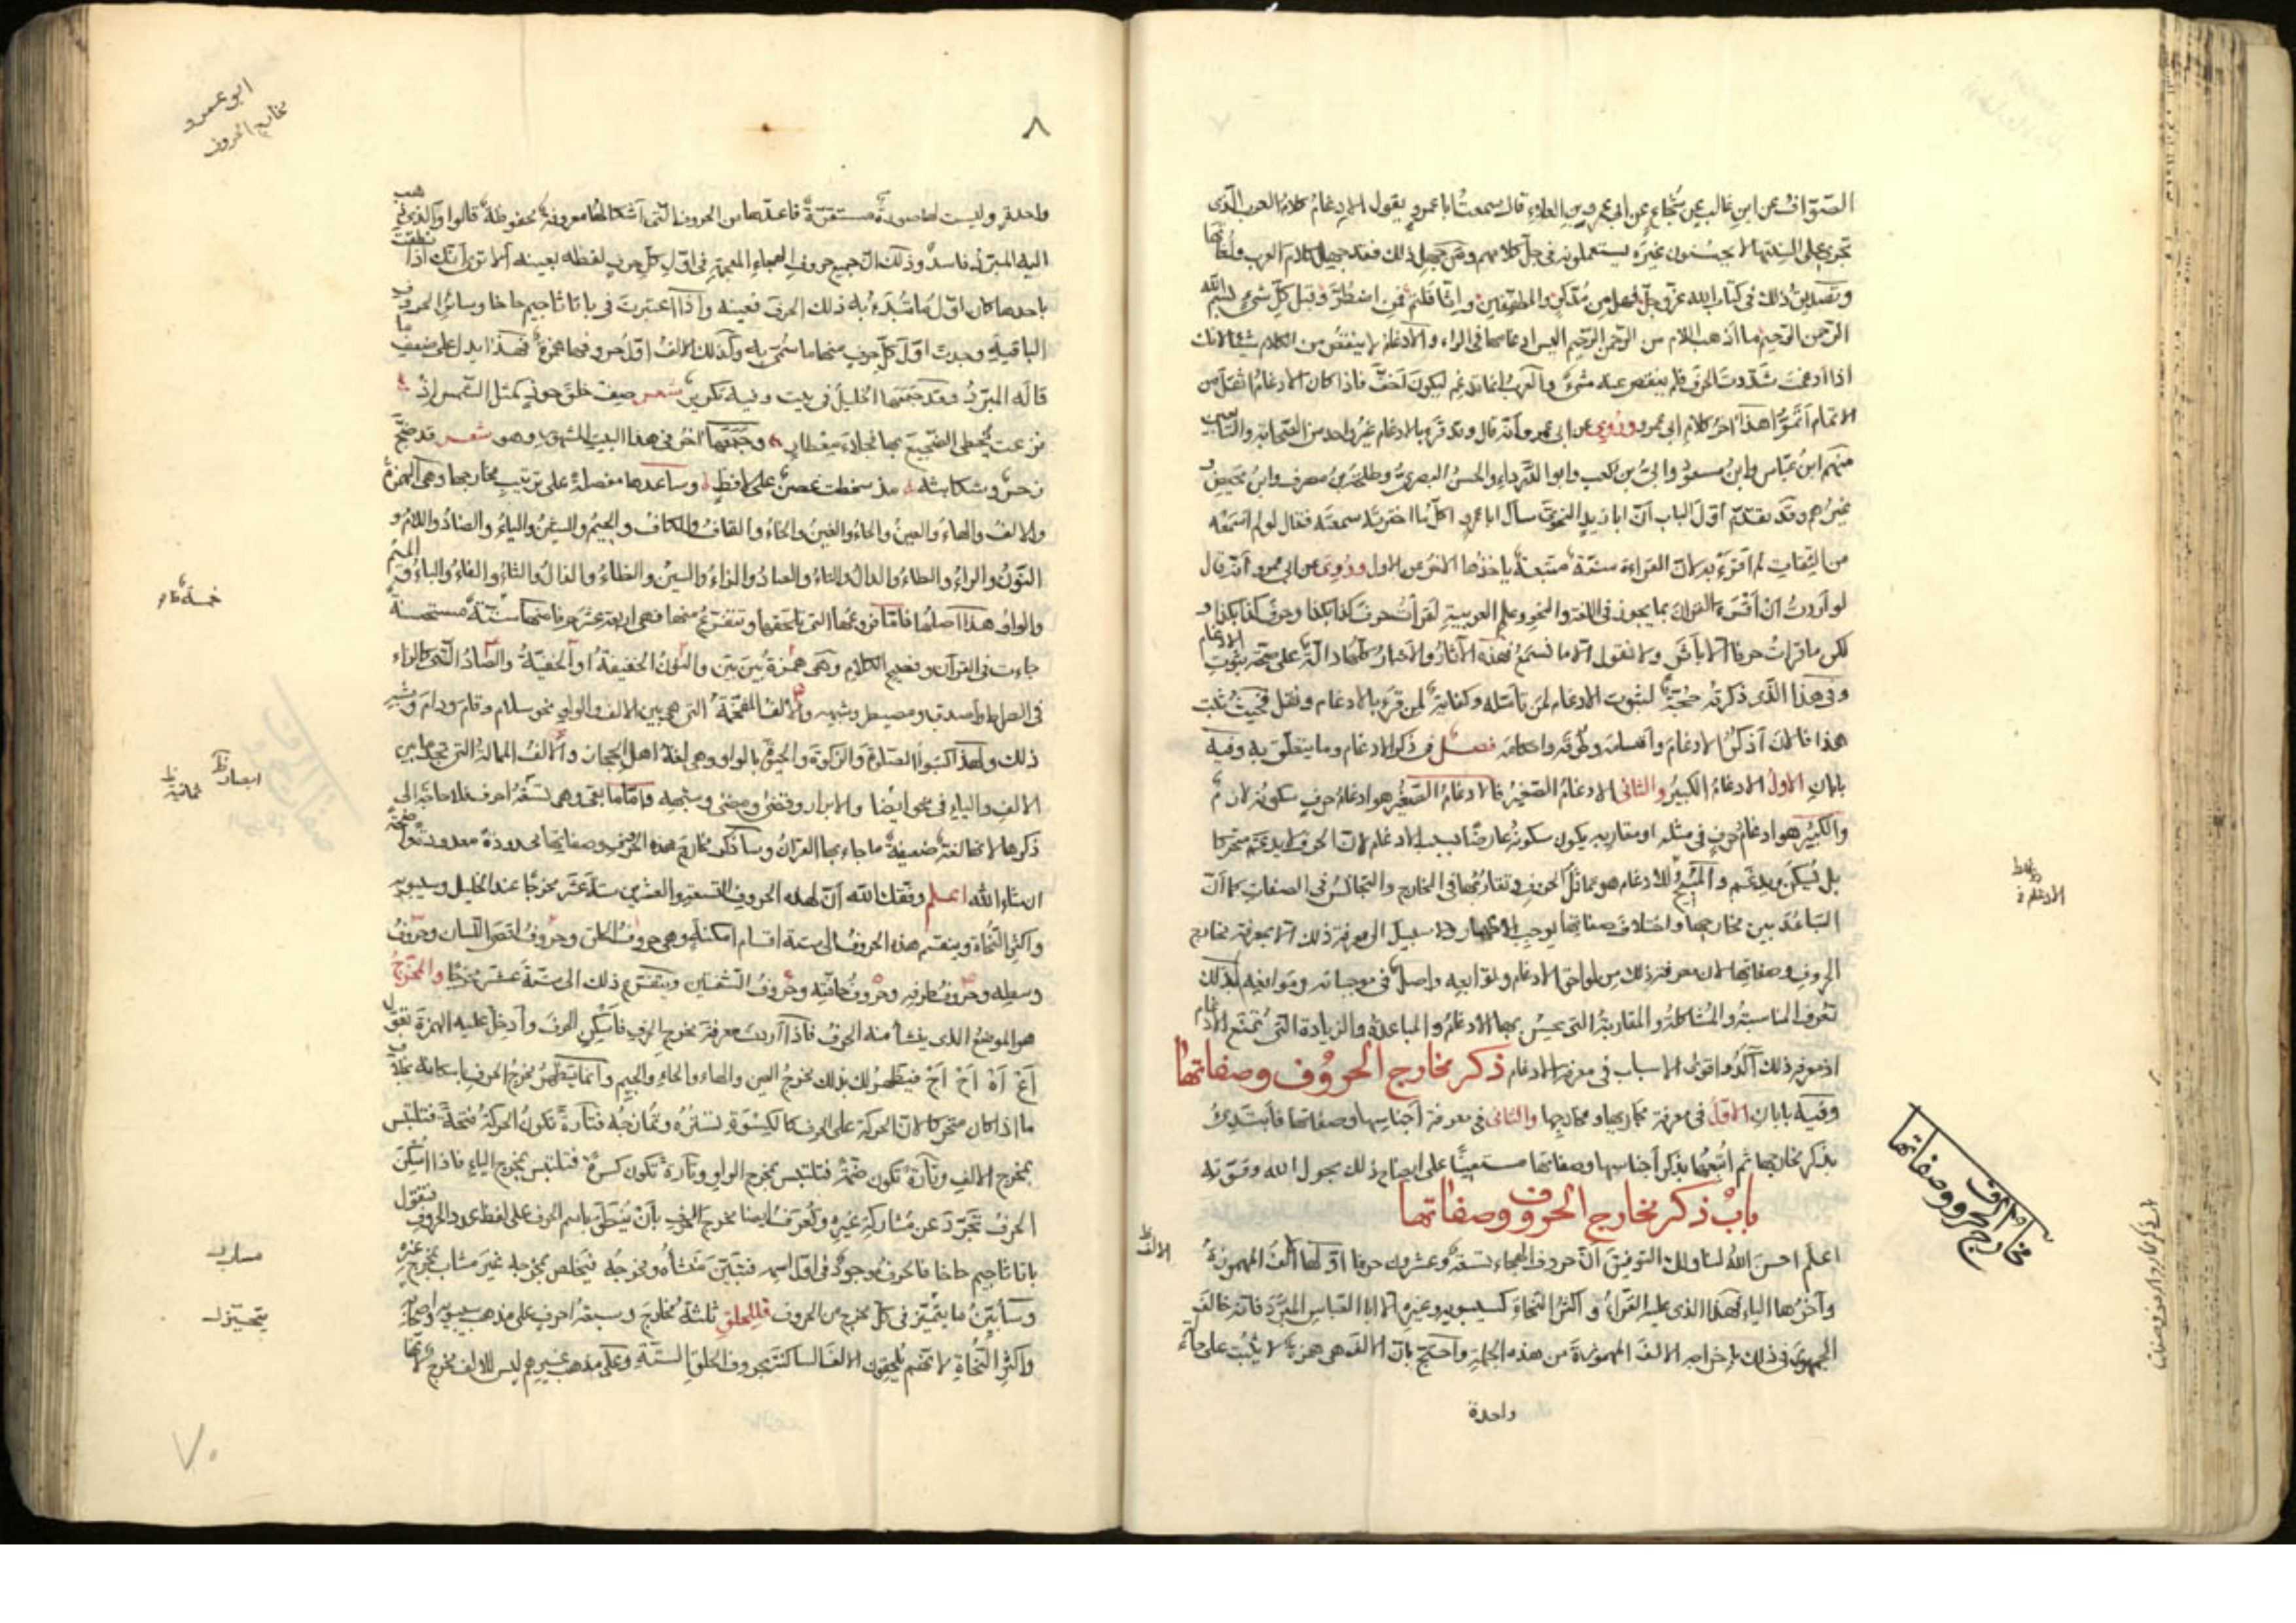 الصوّاف عن ابن غالب عن شجاع عن ابى عمرو بن العلاء قال سمعت ابا عمرو يقول الادغام كلام العرب الذى
تجرى على السنتها لا يحسنون غيره يستعملونه فى جل كلامهم ومن جهل ذلك فقد جهل كلام العرب ولغاتها
وتصديق ذلك فى كتاب الله عز وجل فهل من مدّكر والمطففين واثاقلتم فمن اضطر وقبل كل شىء بسم الله
الرحمن الرحيم ما اذهب اللام من الرحمن الرحيم اليس ادغامها فى الراء والادغام لا ينقص من الكلام شيئا لانك
اذا ادغمت شددت الحرف فلم ينقص منه شىء والعرب انما تدغم ليكون اخف فاذا كان الادغام اثقل من
الاتمام اتموا هذا آخر كلام ابى عمرو وروى عن ابى عمرو انه قال وقد قرء بالادغام غير واحد من الصحابة والتابعين
منهم ابن عباس وابن مسعود وابى بن كعب وابو الدرداء والحسن البصرى وطلحة بن مصرف وابن محيصن و
غيرهم وقد تقدم اول الباب ان ابا زيد النحوى سأل ابا عمرو اكل ما اخترته سمعته فقال لو لم اسمعه
من الثقات لم اقرء به لان القراءة سنة متبعة ياخذها الاخر عن الاول وروى عن ابى عمرو انه قال
لو اردت ان اقرء القرآن بما يجوز فى اللغة والنحو وعلم العربية لقرأت حرف كذا بكذا وحرف كذا بكذا و
لكن ما قرأت حرفا الا باثر ولا نقول الا ما نسمع فهذه الآثار والاخبار كلها دالة على صحة ثبوت الادغام
وفى هذا الذى ذكرته حجة لثبوت الادغام لمن تأمله وكفاية لمن قرء بالادغام ونقل فحيث ثبت
هذا فانا اذكر الادغام واقسامه وطرقه واحكامه فصل فى ذكر الادغام وما يتعلق به وفيه
بابان الاول الادغام الكبير والثانى الادغام الصغير فالادغام الصغير هو ادغام حرف سكونه لازم
والكبير هو ادغام حرف فى مثله او مقاربه يكون سكونه عارضا بسبب الادغام لان الحرف لا يدغم متحركا
بل يسكن ويدغم والمبيح للادغام هو تماثل الحرف وتقاربها فى المخارج والتجانس فى الصفات كما ان
التباعد بين مخارجها واختلاف صفاتها يوجب الاظهار ولا سبيل الى معرفة ذلك الا بمعرفة مخارج
الحروف وصفاتها لان معرفة ذلك من لواحق الادغام وتوابعه واصل فى موجباته وموانعه بذلك
تعرف المناسبة والمشاكلة والمقاربة التى يحسن بها الادغام والمباعدة والزيادة التى تمنع الادغام
اذ معرفة ذلك آكد واقوى الاسباب فى معرفة الادغام ذكر مخارج الحروف وصفاتها
وفيه بابان الاول فى معرفة مجاريها ومخارجها والثانى فى معرفة اجناسها وصفاتها فابتدئ
بذكر مخارجها ثم اتبعها بذكر اجناسها وصفاتها مستعينا على ايضاح ذلك بحول الله وقوته
باب ذكر مخارج الحروف وصفاتها
اعلم احسن الله لنا ولك التوفيق ان حروف الهجاء تسعة وعشرون حرفا اولها الف المهموزة
وآخرها الياء فهذا الذى عليه القراء واكثر النحاة كسيبويه وغيره الا ابا العباس المبرد فانه خالف
الجمهور فى ذلك باخراجه الالف المهموزة من هذه الجملة واحتج بان الالف هى همزة لا يثبت على حالة
واحدة
مخارج الحروف وصفاتها
٨
ابو عمرو
مخارج الحروف
واحدة وليست لها صورة مستقرة فاعدها من الحروف التى اشكالها معروفة محفوظة قالوا والذى ذهب
اليه المبرد فاسد وذلك ان جميع حروف الهجاء المعجمة فى اول كل حرف لفظه بعينه الا ترى انك اذا نطقت
باحدها كان اول ما تبدء به ذلك الحرف بعينه واذا اعتبرت فى با تا ثا جيم حا خا وسائر الحروف
الباقية وجدت اول كل حرف منها ما سمى به وكذلك الالف اول حروفها همزة فهذا يدل على ضعف ما
قاله المبرد وقد جمعها الخليل فى بيت وفيه تكرير شعر صف خلق خود كمثل الشمس اذ
بزغت يحظى الضجيع بها نجلاء معطار وجمعها آخر فى هذا البيت المشهور وهو شعر قد ضج
زحر وشكا بثه مذ سخطت غصن على لافظ وساعدها مفصلة على ترتيب مخارجها وهى الهمزة
والالف والهاء والعين والحاء والغين والخاء والقاف والكاف والجيم والشين والياء والضاد واللام و
النون والراء والطاء والدال والتاء والصاد والزاء والسين والظاء والذال والثاء والفاء والباء والميم
والواو هذا اصلها فاما فروعها التى تلحقها وتتفرع منها فهى اربعة عشر حرفا منها ستة مستحسنة
جاءت فى القرآن وفصيح الكلام وهى همزة بين بين والنون الخفيفة او الخفية والصاد التى كالزاء
فى الصراط واصدق ومصيطر وشبهه والالف المفخمة التى هى بين الالف والواو نحو سلام وقام ودام وشبه
ذلك ولهذا كتبوا الصلوة والزكوة والحيوة بالواو وهى لغة اهل الحجاز والالف الممالة التى تجدها بين
الالف والياء فى نحو ايضا والابرار وقضى ومضى وشبهه واما ما بقى وهى تسعة احرف فلا حاجة الى
ذكرها لانها لغة ضعيفة ما جاء بها القرآن وسأذكر مخارج هذه الحروف وصفاتها محدودة معدودة واضحة
ان شاء الله اعلم وفقك الله ان لهذه الحروف التسعة والعشرين ستة عشر مخرجا عند الخليل وسيبويه
واكثر النحاة وينقسم هذه الحروف الى ستة اقسام امكنة وهى حروف الحلق وحروف اقصى اللسان وحروف
وسطه وحروف طرفه وحروف حافته وحروف الشفتين ويتفرع ذلك الى ستة عشر مخرجا والمخرج
هو الموضع الذى ينشأ منه الحرف فاذا اردت معرفة مخرج الحرف فاسكن الحرف وادخل عليه الهمزة تقول
اع اه اح اج فيظهر لك بذلك مخرج العين والهاء والحاء والجيم وانما يظهر مخرج الحرف باسكانه بخلاف
ما اذا كان متحركا لان الحركة على الحرف كالكسوة تستره وتمازجه فتارة تكون الحركة فتحة فتلتبس
بمخرج الالف وتارة تكون ضمة فتلتبس بمخرج الواو وتارة تكون كسرة فتلتبس بمخرج الياء فاذا اسكن
الحرف تجرد عن مشاركة غيره وتعرف ايضا مخرج الحرف بان ينطق باسم الحرف على لفظ دور الحروف فتقول
با تا ثا جيم حا خا فالحرف موجود فى اول اسمه فتبين منشأه ومخرجه فيخلص بمخرجه غير مشاب بمخرج غيره
وسأبين ما يتميز فى كل مخرج من الحروف فللحلق ثلثة مخارج وسبعة احرف على مذهب سيبويه واصحابه
واكثر النحاة لانهم يلحقون الالف الساكنة بحروف الحلق الستة وعلى مذهب غيرهم ليس للالف مخرج لانها
٧٠